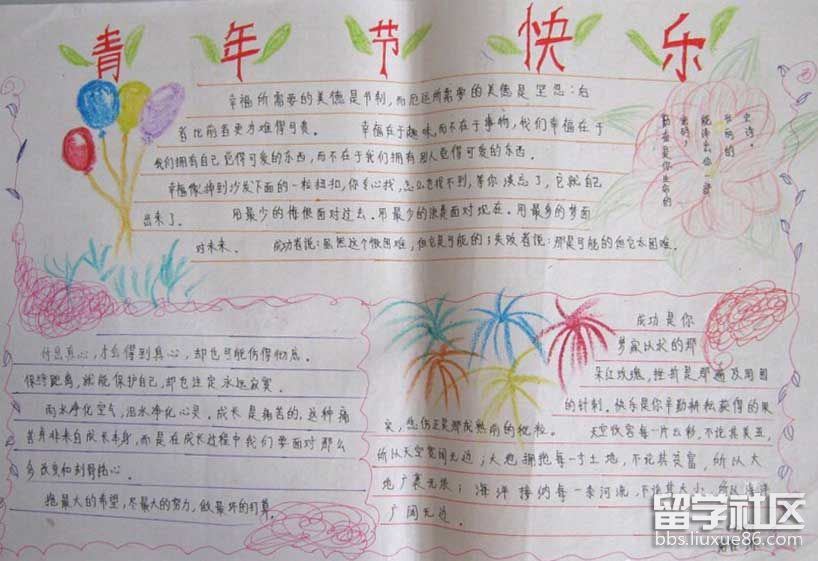 青年节快乐
幸福所需要的美德是节制,而厄运所需要的美德是坚忍;后
者比前者更为难得可贵。 幸福在于趣味,而不在于事物,我们幸福在于
我们拥有自己觉得可爱的东西,而不在于我们拥有别人觉得可爱的东西。
幸福像掉到沙发下面的一粒纽扣,你专心找,怎么也找不到,等你淡忘了,它就自己
出来了。 用最少的悔恨面对过去。用最少的浪费面对现在。用最多的梦面
对未来。 成功者说:虽然这个很困难,但它是可能的;失败者说:那是可能的但它太困难。
勤奋是你生命的
密码,
能译出你一部
壮丽的
史诗。
付出真心,才会得到真心,却也可能伤得彻底。
保持距离,就能保护自己,却也注定永远寂寞。
雨水净化空气,泪水净化心灵。成长是痛苦的,这种痛
苦并非来自成长本身,而是在成长过程中我们要面对那么
多改变和刺骨铭心。
抱最大的希望,尽最大的努力,做最坏的打算。
成功是你
梦寐以求的那
朵红玫瑰,挫折是那遍及周围
的针刺。快乐是你辛勤耕耘获得的果
实,悲伤正是那成熟前的秕粒。 天空收容每一片云彩,不论其美丑,
所以天空宽阔无边;大地拥抱每一寸土地,不论其贫富,所以大
地广袤无垠;海洋接纳每一条河流,不论其大小,所以海洋
广阔无边。
留学社区
bbs.liuxue86.com